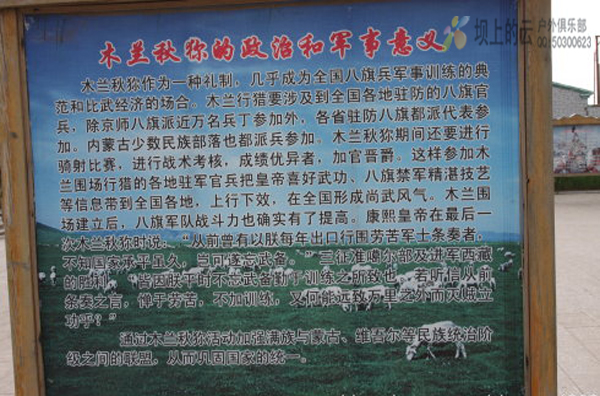 坝上的云
户外俱乐部
QQ:50300623
木兰秋狝的政治和军事意义
木兰秋狝作为一种礼制，几乎成为全国八旗兵军事训练的典
范和比武经济的场合。木兰行猎要涉及到全国各地驻防的八旗官
兵，除京师八旗派近万名兵丁参加外，各省驻防八旗都派代表参
加。内蒙古少数民族部落也都派兵参加。木兰秋狝期间还要进行
骑射比赛，进行战术考核，成绩优异者，加官晋爵。这样参加木
兰围场行猎的各地驻军官兵把皇帝喜好武功、八旗禁军精湛技艺
等信息带到全国各地，上行下效，在全国形成尚武风气。木兰围
场建立后，八旗军队战斗力也确实有了提高。康熙皇帝在最后一
次木兰秋狝时说：“从前曾有以朕每年出口行围劳苦军士条奏者，
不知国家承平虽久，岂可遂忘武备。”三征准噶尔部及进军西藏
的胜利，“皆因朕平时不忘武备勤于训练之所致也，若听信从前
条奏之言，惮于劳苦，不加训练，又何能远致万里之外而灭贼立
功乎？”
通过木兰秋狝活动加强满族与蒙古、维吾尔等民族统治阶
级之间的联盟，从而巩固国家的统一。